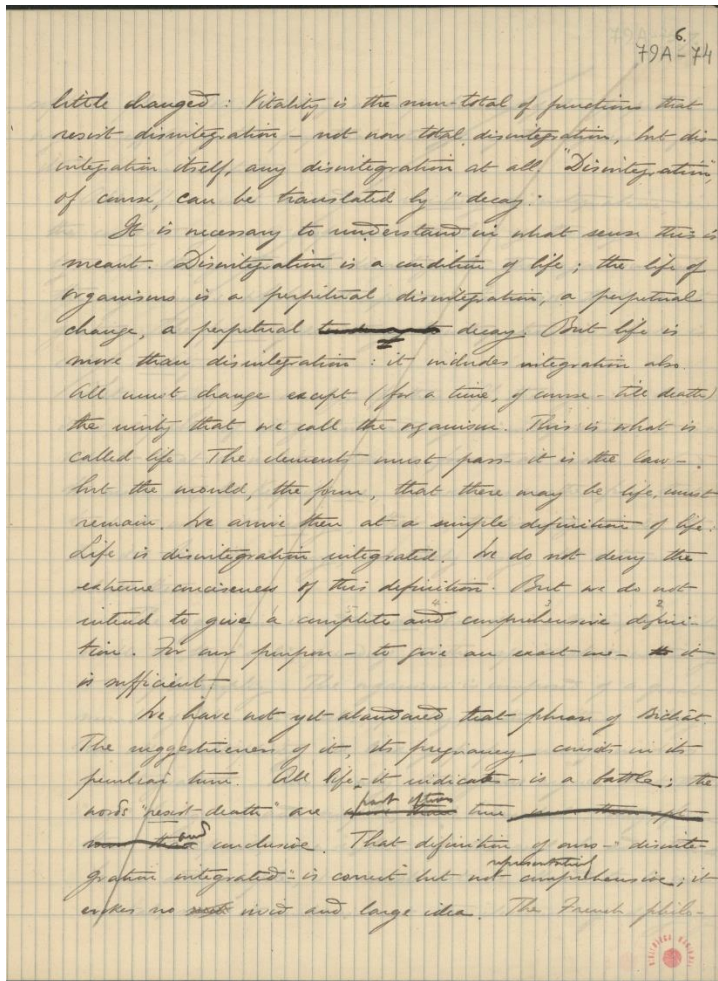 6.
79A-74
little changed: Vitality is the sum-total of functions that
resist disintegration - not now total disintegration, but dis-
integration itself, any disintegration at all. "Disintegration",
of course, can be translated by "decay."
It is necessary to understand in what sense this is
meant. Disintegration is a condition of life; the life of
organisms is a perpetual disintegration, a perpetual
change, a perpetual decay. But life is
more than disintegration: it includes integration also.
All must change except (for a time, of course - till death)
the unity that we call the organism. This is what is
called life. The elements must pass - it is the law -
but the mould, the form, that there may be life, must
remain. We arrive then at a simple definition of life:
Life is disintegration integrated. We do not deny the
extreme conciseness of this definition. But we do not
intend to give a complete and comprehensive defini-
tion. For our purpose - to give an exact one - it
is sufficient.
We have not yet abandoned that phrase of Bichât.
The suggestiveness of it, its pregnancy consists in its
peculiar turn. All life - it indicates - is a battle; the
words "resist death" are true
and conclusive. That definition of ours - "disinte-
gration integrated" - is correct but not representative comprehensive; it
evokes no vivid and large idea. The French philo-